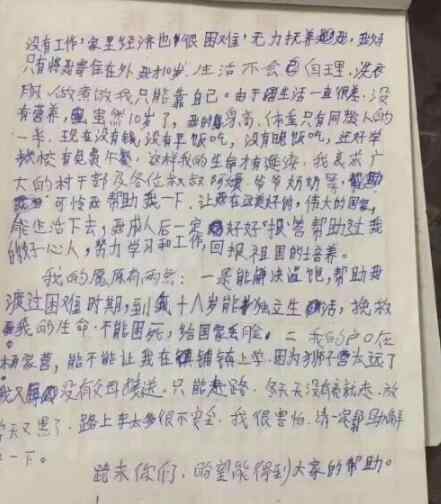 没有工作,家里经济也很困难,无力抚养我,
只有将我寄住在外 我才10岁,生活不会自理,洗衣
服,做煮饭我只能靠自己。由于生活一直很差,没
有营养,虽然10岁了,我的身高、体重只有同龄人的
一半,现在没有钱,没有早饭吃,没有晚饭吃,还好学
校有免费午餐,这样我的生命才有延续。我恳求广
大的村干部及各位叔叔阿姨、爷爷奶奶等,
可怜帮助我一下,让我在这美好的,伟大的国家,
能生活下去,我成人后一定好好报答帮助过我
的好心人,努力学习和工作,回报祖国的培养。
我的愿原有两点:一是能解决温饱,帮助我
渡过困难时期,到我十八岁能独立生活,挽救
我的生命,不能困死,给国家丢脸。二 我的户口在
家营,能不能让我在镇上学,因为太远了
我又没有父母接送,只能走路,冬天没有亮就走,放
学天又黑了,路上车太多很不安全,我很害怕,请帮助解
一下。
跪求你们,盼望能得到大家的帮助。